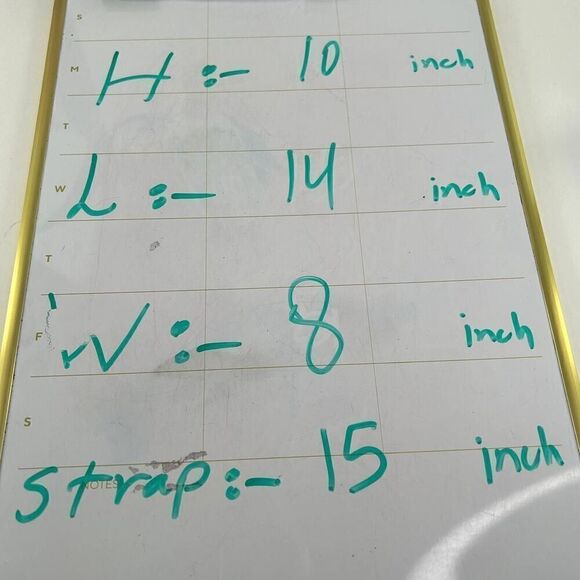 S
M H :- 10 inch
T
W L :- 14 inch
T
F W :- 8 inch
S
NOTES
Strap :- 15 inch